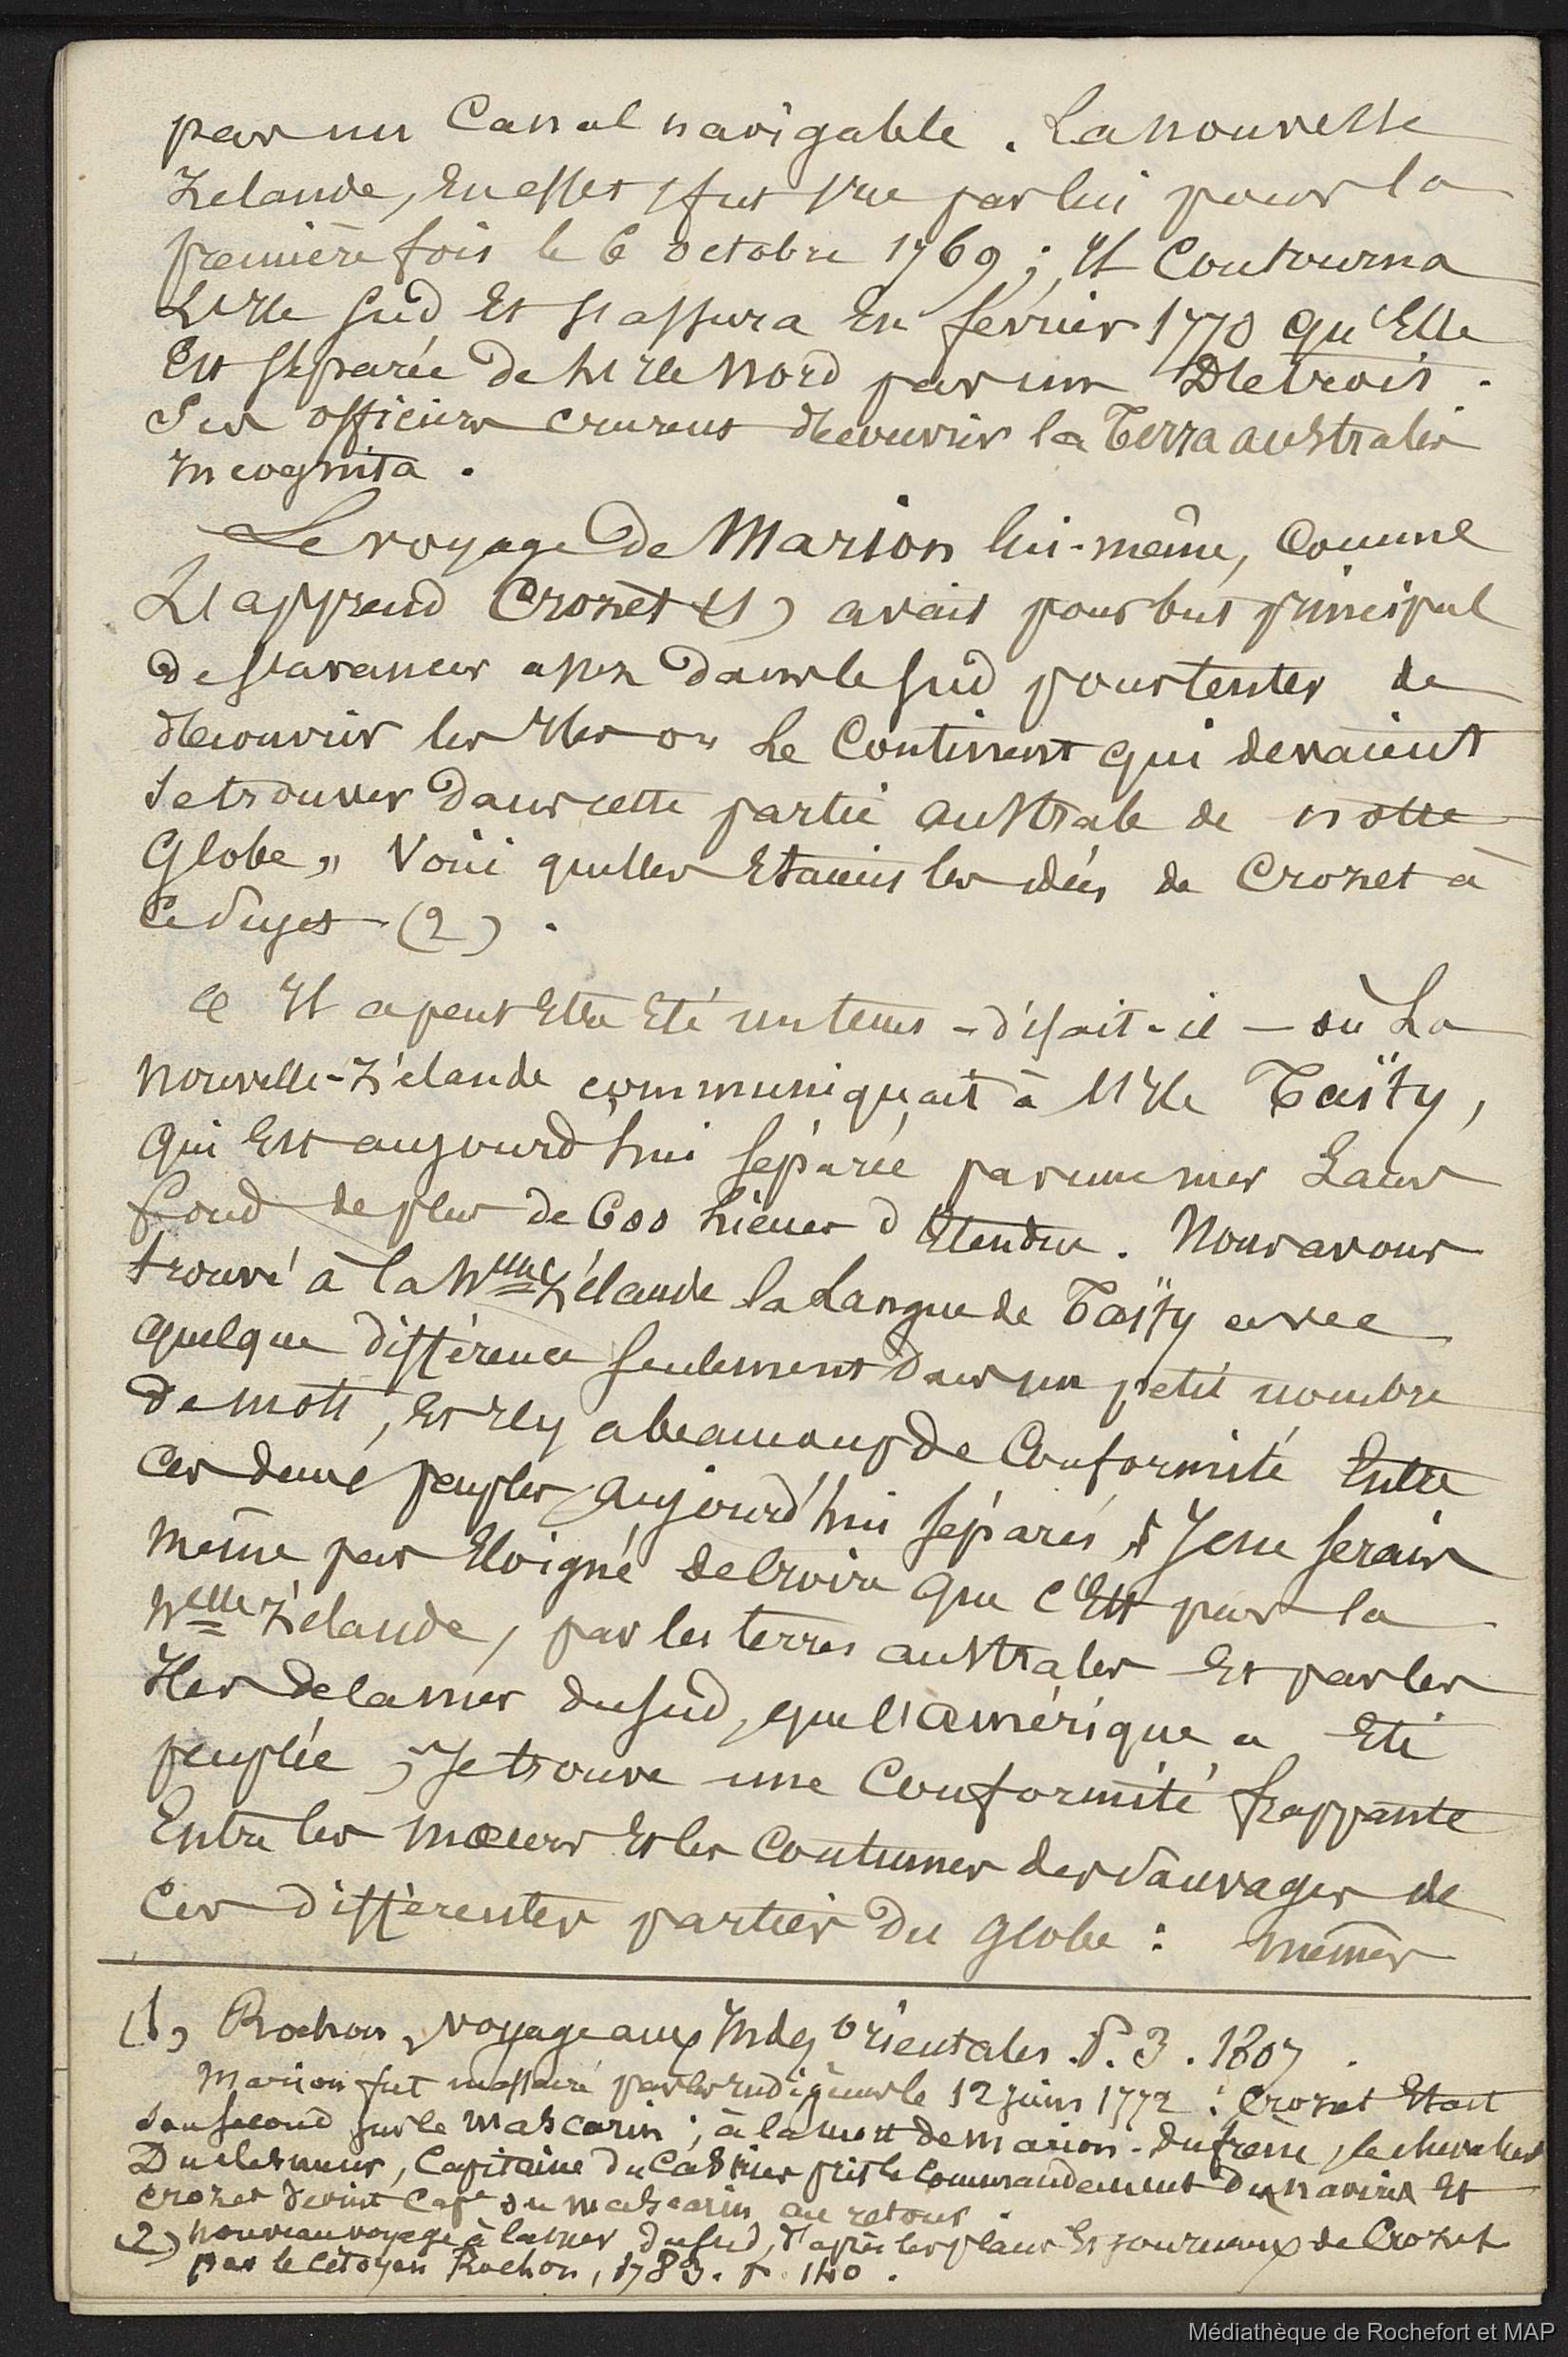 par un Canal navigable. La nouvelle
Zelande, en effet fut vue par lui pour la
première fois le 6 octobre 1769; Il Contourna
L'Ile Sud Et s'assura En février 1770 qu'Elle
Est séparée de L'Ile Nord par un Détroit.
Ses officiers crurent découvrir la Terra australis
Incognita.
Le voyage de Marion lui-même, Comme
L'apprend Crozet (1) avait pour but principal
de s'avancer assez dans le Sud pour tenter de
découvrir les Iles ou Le Continent qui devaient
se trouver dans cette partie australe de notre
Globe, » Voici quelles Etaient les idées de Crozet à
Ce Sujet (2).
« Il a peut Etre Eté un tems - disait-il - où La
Nouvelle-Zélande communiquait à l'Ile Taïty,
qui Est aujourd'hui séparée par une mer Sans
fond de plus de 600 Lieues d'Etendue. Nous avons
trouvé à la Nelle Zélande la Langue de Taïty avec
quelque différence seulement dans un petit nombre
de mots, Et Il y a beaucoup de Conformité Entre
Ces deux peuples aujourd'hui séparés; Je ne serais
même pas Eloigné de croire que c'Est par la
Nelle Zélande, par les terres australes Et par les
Iles de la mer du Sud, que l'amérique a Eté
peuplée; Je trouve une Conformité frappante
Entre les mœurs Et les Coutumes des Sauvages de
Ces différentes parties du globe: mêmes
(1) Rochon, voyage aux Indes Orientales. T. 3. 1807.
Marion fut massacré par les Indigènes le 12 Juin 1772: Crozet Etait
son second sur le Mascarin; à la mort de Marion-Dufresne, le chevalier
Duclesmeur, Capitaine du Castries prit le Commandement du navire Et
Crozet devint Cape du Mascarin au retour.
(2) Nouveau voyage à la mer du Sud, d'après les plans Et journaux de Crozet
par le Citoyen Rochon, 1783. p. 140.
Médiathèque de Rochefort et MAP